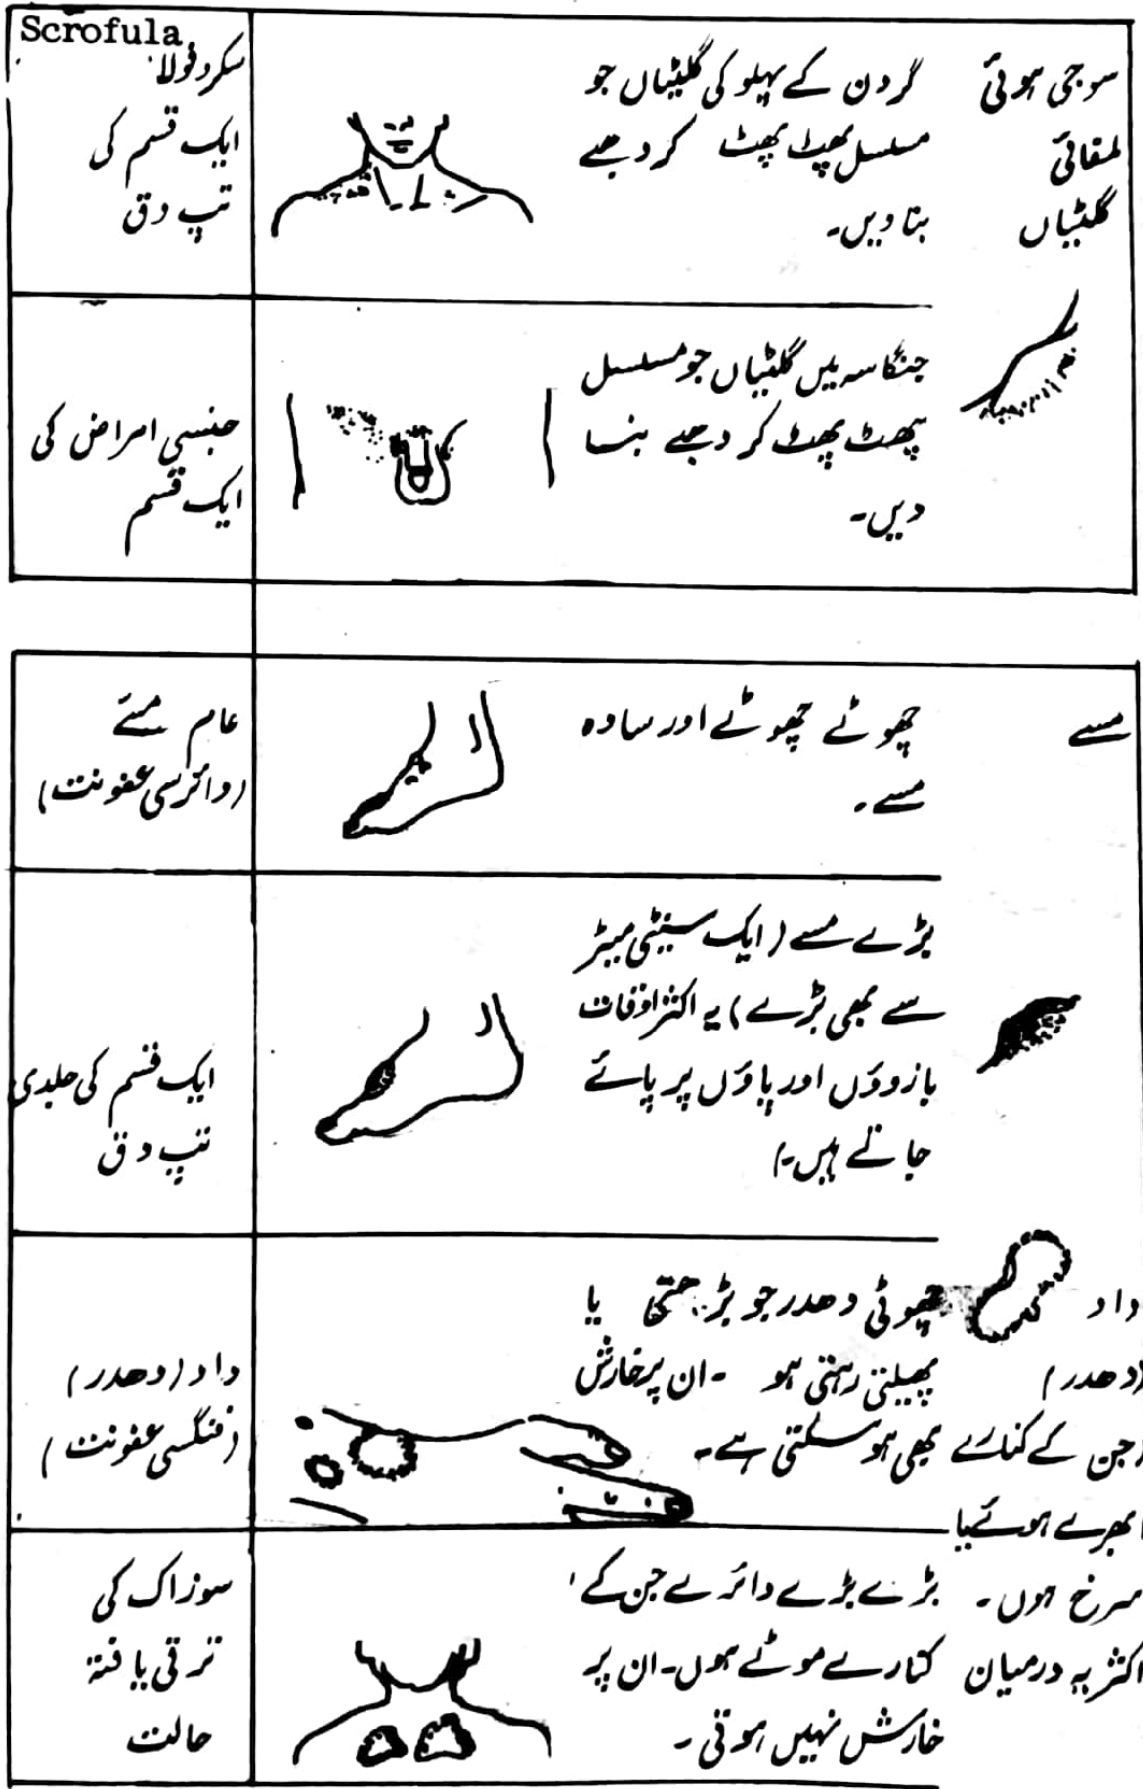 سوجی ہوئی
لمفائی
گلٹیاں
گردن کے پہلو کی گلٹیاں جو
مسلسل پھٹ پھٹ کر دھبے
بنا دیں۔
Scrofula
سکروفولا
ایک قسم کی
تپ دق
جنگاسہ میں گلٹیاں جو مسلسل
پھٹ پھٹ کر دھبے بنا
دیں۔
جنسی امراض کی
ایک قسم
مسے
چھوٹے چھوٹے اور سادہ
مسے۔
عام مسّے
(وائرسی عفونت)
بڑے مسے (ایک سینٹی میٹر
سے بھی بڑے) یہ اکثر اوقات
بازوؤں اور پاؤں پر پائے
جاتے ہیں۔)
ایک قسم کی جلدی
تپ دق
داد
(دھدر)
جن کے کنارے
ابھرے ہوئے یا
سرخ ہوں۔
اکثر یہ درمیان
چھوٹی دھدر جو بڑھتی یا
پھیلتی رہتی ہو ۔ ان پر خارش
بھی ہو سکتی ہے۔
داد (دھدر)
(فنگسی عفونت)
بڑے بڑے دائرے جن کے
کنارے موٹے ہوں۔ ان پر
خارش نہیں ہوتی۔
سوزاک کی
ترقی یافتہ
حالت